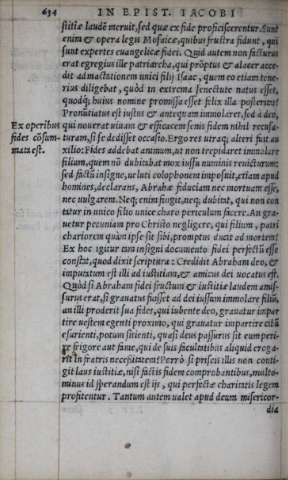 634 IN EPIST. IACOBI
stitiæ laudẽ meruit, sed quæ ex fide proficiscerentur. Sunt
enim & opera legis Mosaicæ, quibus frustra fidunt, qui
sunt expertes euangelicæ fidei. Quid autem non facturus
erat egregius ille patriarcha, qui prõptus & alacer acce-
dit ad mactationem unici filij Isaac, quem eo etiam tene-
rius diligebat, quòd in extrema senectute natus esset,
quodq; huius nomine promissa esset felix illa posteritas?
Pronũtiatus est iustus & antequam immolaret, sed à deo,
Ex operibus qui nouerat uiuam & efficacem senis fidem nihil recusa-
fides cõsum- turam, si se dedisset occasio. Ergo res utraq; alteri fuit au
mata est. xilio: Fides addebat animum, ut non trepidaret immolare
filium, quem nõ dubitabat mox iussu numinis reuicturum:
sed factũ insigne, ueluti colophonem imposuit, etiam apud
homines, declarans, Abrahæ fiduciam nec mortuam esse,
nec uulgarem. Neq; enim fingit, neq; dubitat, qui non con
tatur in unico filio unice charo periculum facere. An gra-
uetur pecuniam pro Christo negligere, qui filium, patri
chariorem quàm ipse sit sibi, promptus ducit ad mortem?
Ex hoc igitur tam insigni documento fidei perfectũ esse
constat, quod dixit scriptura: Credidit Abraham deo, &
imputatum est illi ad iustitiam, & amicus dei uocatus est.
Quòd si Abraham fidei fructum & iustitiæ laudem amis-
surus erat, si grauatus fuisset ad dei iussum immolare filiũ,
an illi proderit sua fides, qui iubente deo, grauatur imper
tire uestem egenti proximo, qui grauatur impartire cibũ
esurienti, potum sitienti, quasi deus passurus sit eum peri-
re frigore aut fame, qui de suis facultatibus aliquid eroga-
rit in fratris necessitatem? Porrò si priscis illis non conti-
git laus iustitiæ, nisi factis fidem comprobantibus, multo-
minus id sperandum est ijs, qui perfectæ charitatis legem
profitentur. Tantum autem ualet apud deum misericor-
dia